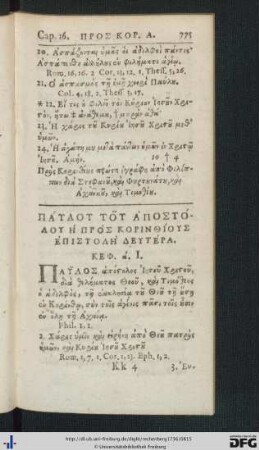 Cap. 16. ΠΡΟΣ ΚΟΡ. Α. 775
20. Ἀσπάζονται ὑμᾶς οἱ ἀδελφοὶ πάντες·
Ἀσπάσασθε ἀλλήλους ἐν φιλήματι ἁγίῳ.
Rom, 16, 16. 2 Cor, 13, 12. 1, Thess, 5, 26,
21. Ὁ ἀσπασμὸς τῇ ἐμῇ χειρὶ Παύλου.
Col. 4, 18. 2, Thess, 3, 17.
* 22. Εἴ τις οὐ φιλεῖ τὸν Κύριον Ἰησοῦν Χρι-
στὸν, ἤτω ἀνάθεμα,
23. Ἡ χάρις τοῦ Κυρίου Ἰησοῦ Χριστοῦ μεθ'
ὑμῶν.
24. Ἡ ἀγάπη μου μετὰ πάντων ὑμῶν ἐν Χριστῷ
Ἰησοῦ. Ἀμήν.
Πρὸς Κορινθίους πρώτη ἐγράφη ἀπὸ Φιλίπ-
πων διὰ Στεφανᾶ, καὶ Φορτουνάτου, καὶ
Ἀχαϊκοῦ, καὶ Τιμοθέου.
ΠΑΥΛΟΥ ΤΟΥ ΑΠΟΣΤΟ-
ΛΟΥ Η ΠΡΟΣ ΚΟΡΙΝΘΙΟΥΣ
ΕΠΙΣΤΟΛΗ ΔΕΥΤΕΡΑ.
ΚΕΦ. ά. I.
ΠΑΥΛΟΣ ἀπόστολος Ἰησοῦ Χριστοῦ,
διὰ θελήματος Θεοῦ, καὶ Τιμόθεος
ὁ ἀδελφὸς, τῇ ἐκκλησίᾳ τοῦ Θεοῦ τῇ οὔσῃ
ἐν Κορίνθῳ, σὺν τοῖς ἁγίοις πᾶσι τοῖς οὖσιν
ἐν ὅλῃ τῇ Ἀχαΐᾳ.
Phil. 1, 1.
2. Χάρις ὑμῖν καὶ εἰρήνη ἀπὸ Θεοῦ πατρὸς
ἡμῶν, καὶ Κυρίου Ἰησοῦ Χριστοῦ
Rom, 1, 7, 1, Cor, 1, 3. Eph, 1, 2,
Kk 4 3. Εὐ-
http://dl.ub.uni-freiburg.de/diglit/rechenberg1736/0815
© Universitätsbibliothek Freiburg
gefördert durch die
DFG